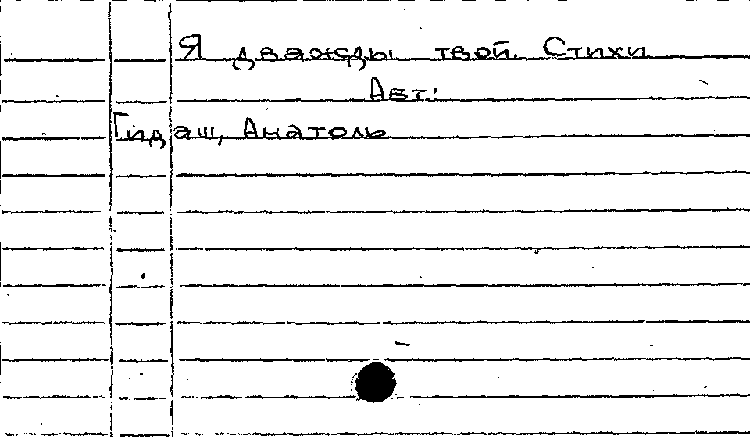 Я дважды твой. Стихи
Авт.:
Гидаш, Анатоль